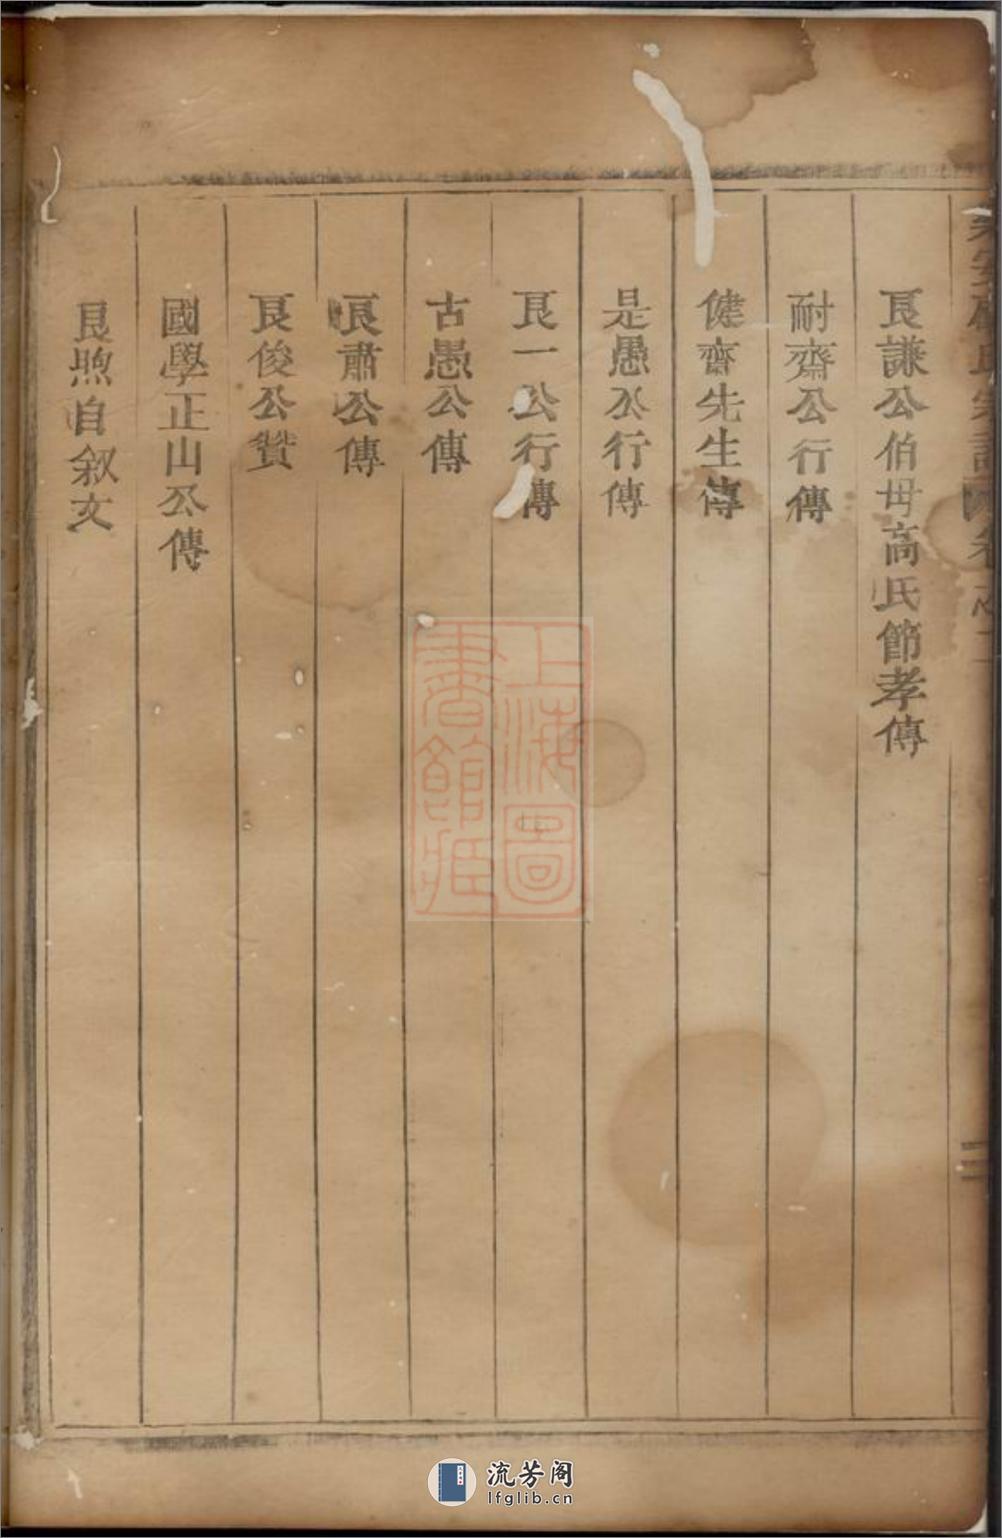 良謙公伯母高氏節孝傳
耐齋公行傳
健齋先生傳
是愚公行傳
良一公行傳
古愚公傳
良肅公傳
良俊公贊
國學正山公傳
良煦自叙文
上海圖書館藏
流芳阁
lfglib.cn